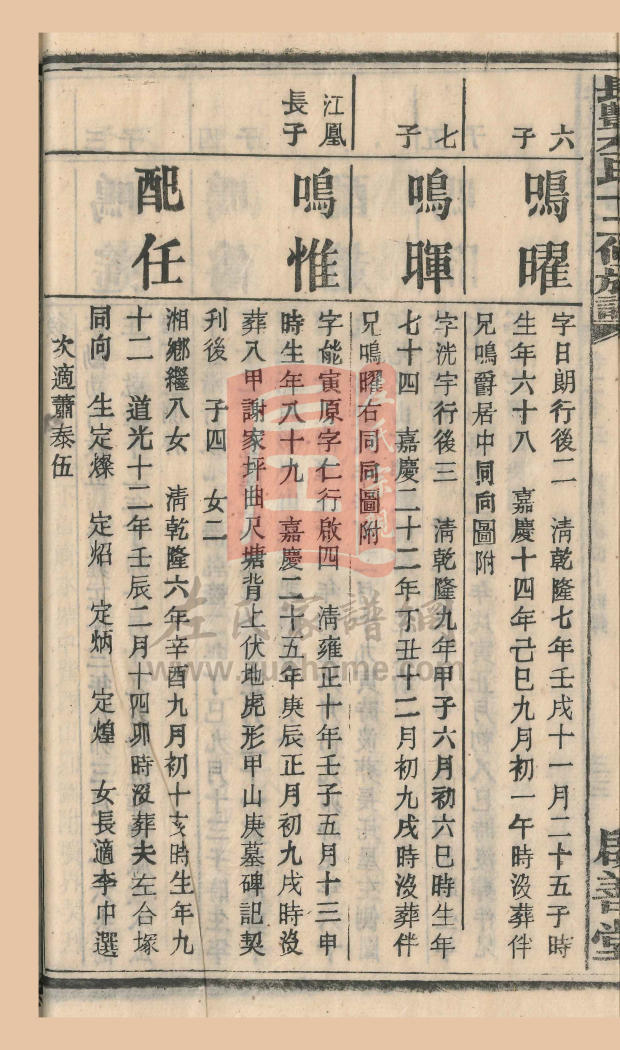 六子
鳴曜
字日朗行後二　清乾隆七年壬戌十一月二十五子時
生年六十八　嘉慶十四年己巳九月初一午時沒葬伴
兄鳴爵居中同向圖附
七子
鳴暉
字洸宇行後三　清乾隆九年甲子六月初六巳時生年
七十四　嘉慶二十二年丁丑十二月初九戌時沒葬伴
兄鳴曜右同同圖附
江凰
長子
鳴惟
字能寅原字仁行啟四　清雍正十年壬子五月十三申
時生年八十九　嘉慶二十五年庚辰正月初九戌時沒
葬八甲謝家坪曲尺塘背上伏地虎形甲山庚墓碑記契
刋後　子四　女二
配任
湘鄉繼八女　清乾隆六年辛酉九月初十亥時生年九
十二　道光十二年壬辰二月十四夘時沒葬夫左合塚
同向　生定燦　定炤　定炳　定煌　女長適李巾選
次適蕭泰伍
啟善堂
左氏家譜網
www.zuohome.com